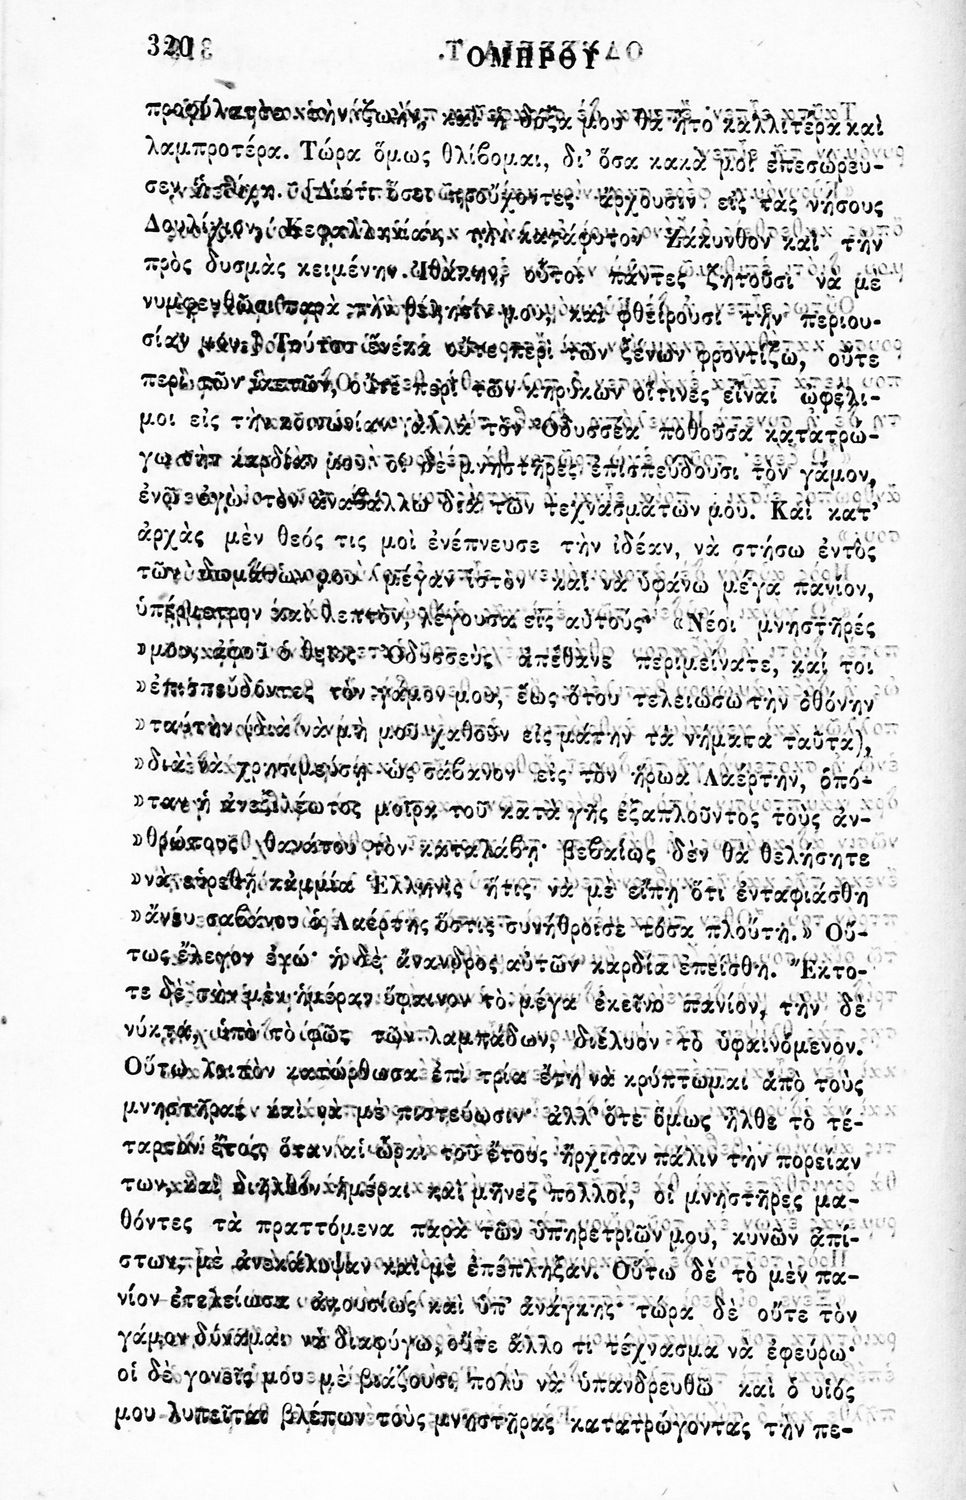 320 ΟΜΗΡΟΥ
προφύλαττε τὴν ζωήν, καὶ ἡ δόξα μου θὰ ἦτο καλλιτέρα καὶ
λαμπροτέρα. Τώρα ὅμως θλίβομαι, δι' ὅσα κακά μοὶ ἐπεσώρευ-
σεν ἡ Διότι ὅσοι προὔχοντες ἄρχουσιν εἰς τὰς νήσους
Δουλίχιον, καὶ τὴν κατάφυτον Ζάκυνθον καὶ τὴν
πρὸς δυσμὰς κειμένην Ἰθάκην, οὗτοι πάντες ζητοῦσι νὰ μὲ
νυμφευθῶσι παρὰ τὴν θέλησίν μου, καὶ φθείρουσι τὴν περιου-
σίαν μου. Τούτου ἕνεκα οὔτε περὶ τῶν ξένων φροντίζω, οὔτε
περὶ τῶν ἱκετῶν, οὔτε περὶ τῶν κηρύκων οἵτινες εἶναι ὠφέλι-
μοι εἰς τὴν κοινωνίαν ἀλλὰ τὸν Ὀδυσσέα ποθοῦσα κατατρώ-
γω τὴν καρδίαν μου· οἱ δὲ μνηστῆρες ἐπισπεύδουσι τὸν γάμον,
ἐνῷ ἐγὼ τὸν ἀναβάλλω διὰ τῶν τεχνασμάτων μου. Καὶ κατ'
ἀρχὰς μὲν θεός τις μοὶ ἐνέπνευσε τὴν ἰδέαν, νὰ στήσω ἐντὸς
τῶν δωμάτων μου μέγαν ἱστὸν καὶ νὰ ὑφάνω μέγα πανίον,
ὑπέρμετρον καὶ λεπτὸν, λέγουσα εἰς αὐτούς· «Νέοι μνηστῆρές
»μου, ἀφοῦ ὁ θεῖος Ὀδυσσεὺς ἀπέθανε περιμείνατε, καί τοι
»ἐπισπεύδοντες τὸν γάμον μου, ἕως ὅτου τελειώσω τὴν ὀθόνην
»ταύτην (διὰ νὰ μή μου χαθοῦν εἰς μάτην τὰ νήματα ταῦτα),
»διὰ νὰ χρησιμεύσῃ ὡς σάβανον εἰς τὸν ἥρωα Λαέρτην, ὁπό-
»ταν ἡ ἀνεξιλέωτος μοῖρα τοῦ κατὰ γῆς ἐξαπλοῦντος τοὺς ἀν-
»θρώπους θανάτου τὸν καταλάβῃ· βεβαίως δὲν θὰ θελήσητε
»νὰ εὑρεθῇ κἀμμία Ἑλληνὶς ἥτις νὰ μὲ εἴπῃ ὅτι ἐνταφιάσθη
»ἄνευ σαβάνου ὁ Λαέρτης ὅστις συνήθροισε τόσα πλούτη.» Οὕ-
τως ἔλεγον ἐγώ· ἡ δὲ ἄνανδρος αὐτῶν καρδία ἐπείσθη. Ἔκτο-
τε δὲ τὴν μὲν ἡμέραν ὕφαινον τὸ μέγα ἐκεῖνο πανίον, τὴν δὲ
νύκτα, ὑπὸ τὸ φῶς τῶν λαμπάδων, διέλυον τὸ ὑφαινόμενον.
Οὕτω λοιπὸν κατώρθωσα ἐπὶ τρία ἔτη νὰ κρύπτωμαι ἀπὸ τοὺς
μνηστῆρας καὶ νὰ μὲ πιστεύωσιν· ἀλλ' ὅτε ὅμως ἦλθε τὸ τέ-
ταρτον ἔτος, ὅταν αἱ ὧραι τοῦ ἔτους ἤρχισαν πάλιν τὴν πορείαν
των, καὶ διῆλθον ἡμέραι καὶ μῆνες πολλοί, οἱ μνηστῆρες μα-
θόντες τὰ πραττόμενα παρὰ τῶν ὑπηρετριῶν μου, κυνῶν ἀπί-
στων, μὲ ἀνεκάλυψαν καὶ μὲ ἐπέπληξαν. Οὕτω δὲ τὸ μὲν πα-
νίον ἐτελείωσα ἀκουσίως καὶ ὑπ' ἀνάγκης· τώρα δὲ οὔτε τὸν
γάμον δύναμαι νὰ διαφύγω, οὔτε ἄλλο τι τέχνασμα νὰ ἐφεύρω·
οἱ δὲ γονεῖς μου μὲ βιάζουσι πολὺ νὰ ὑπανδρευθῶ καὶ ὁ υἱός
μου λυπεῖται βλέπων τοὺς μνηστῆρας κατατρώγοντας τὴν πε-